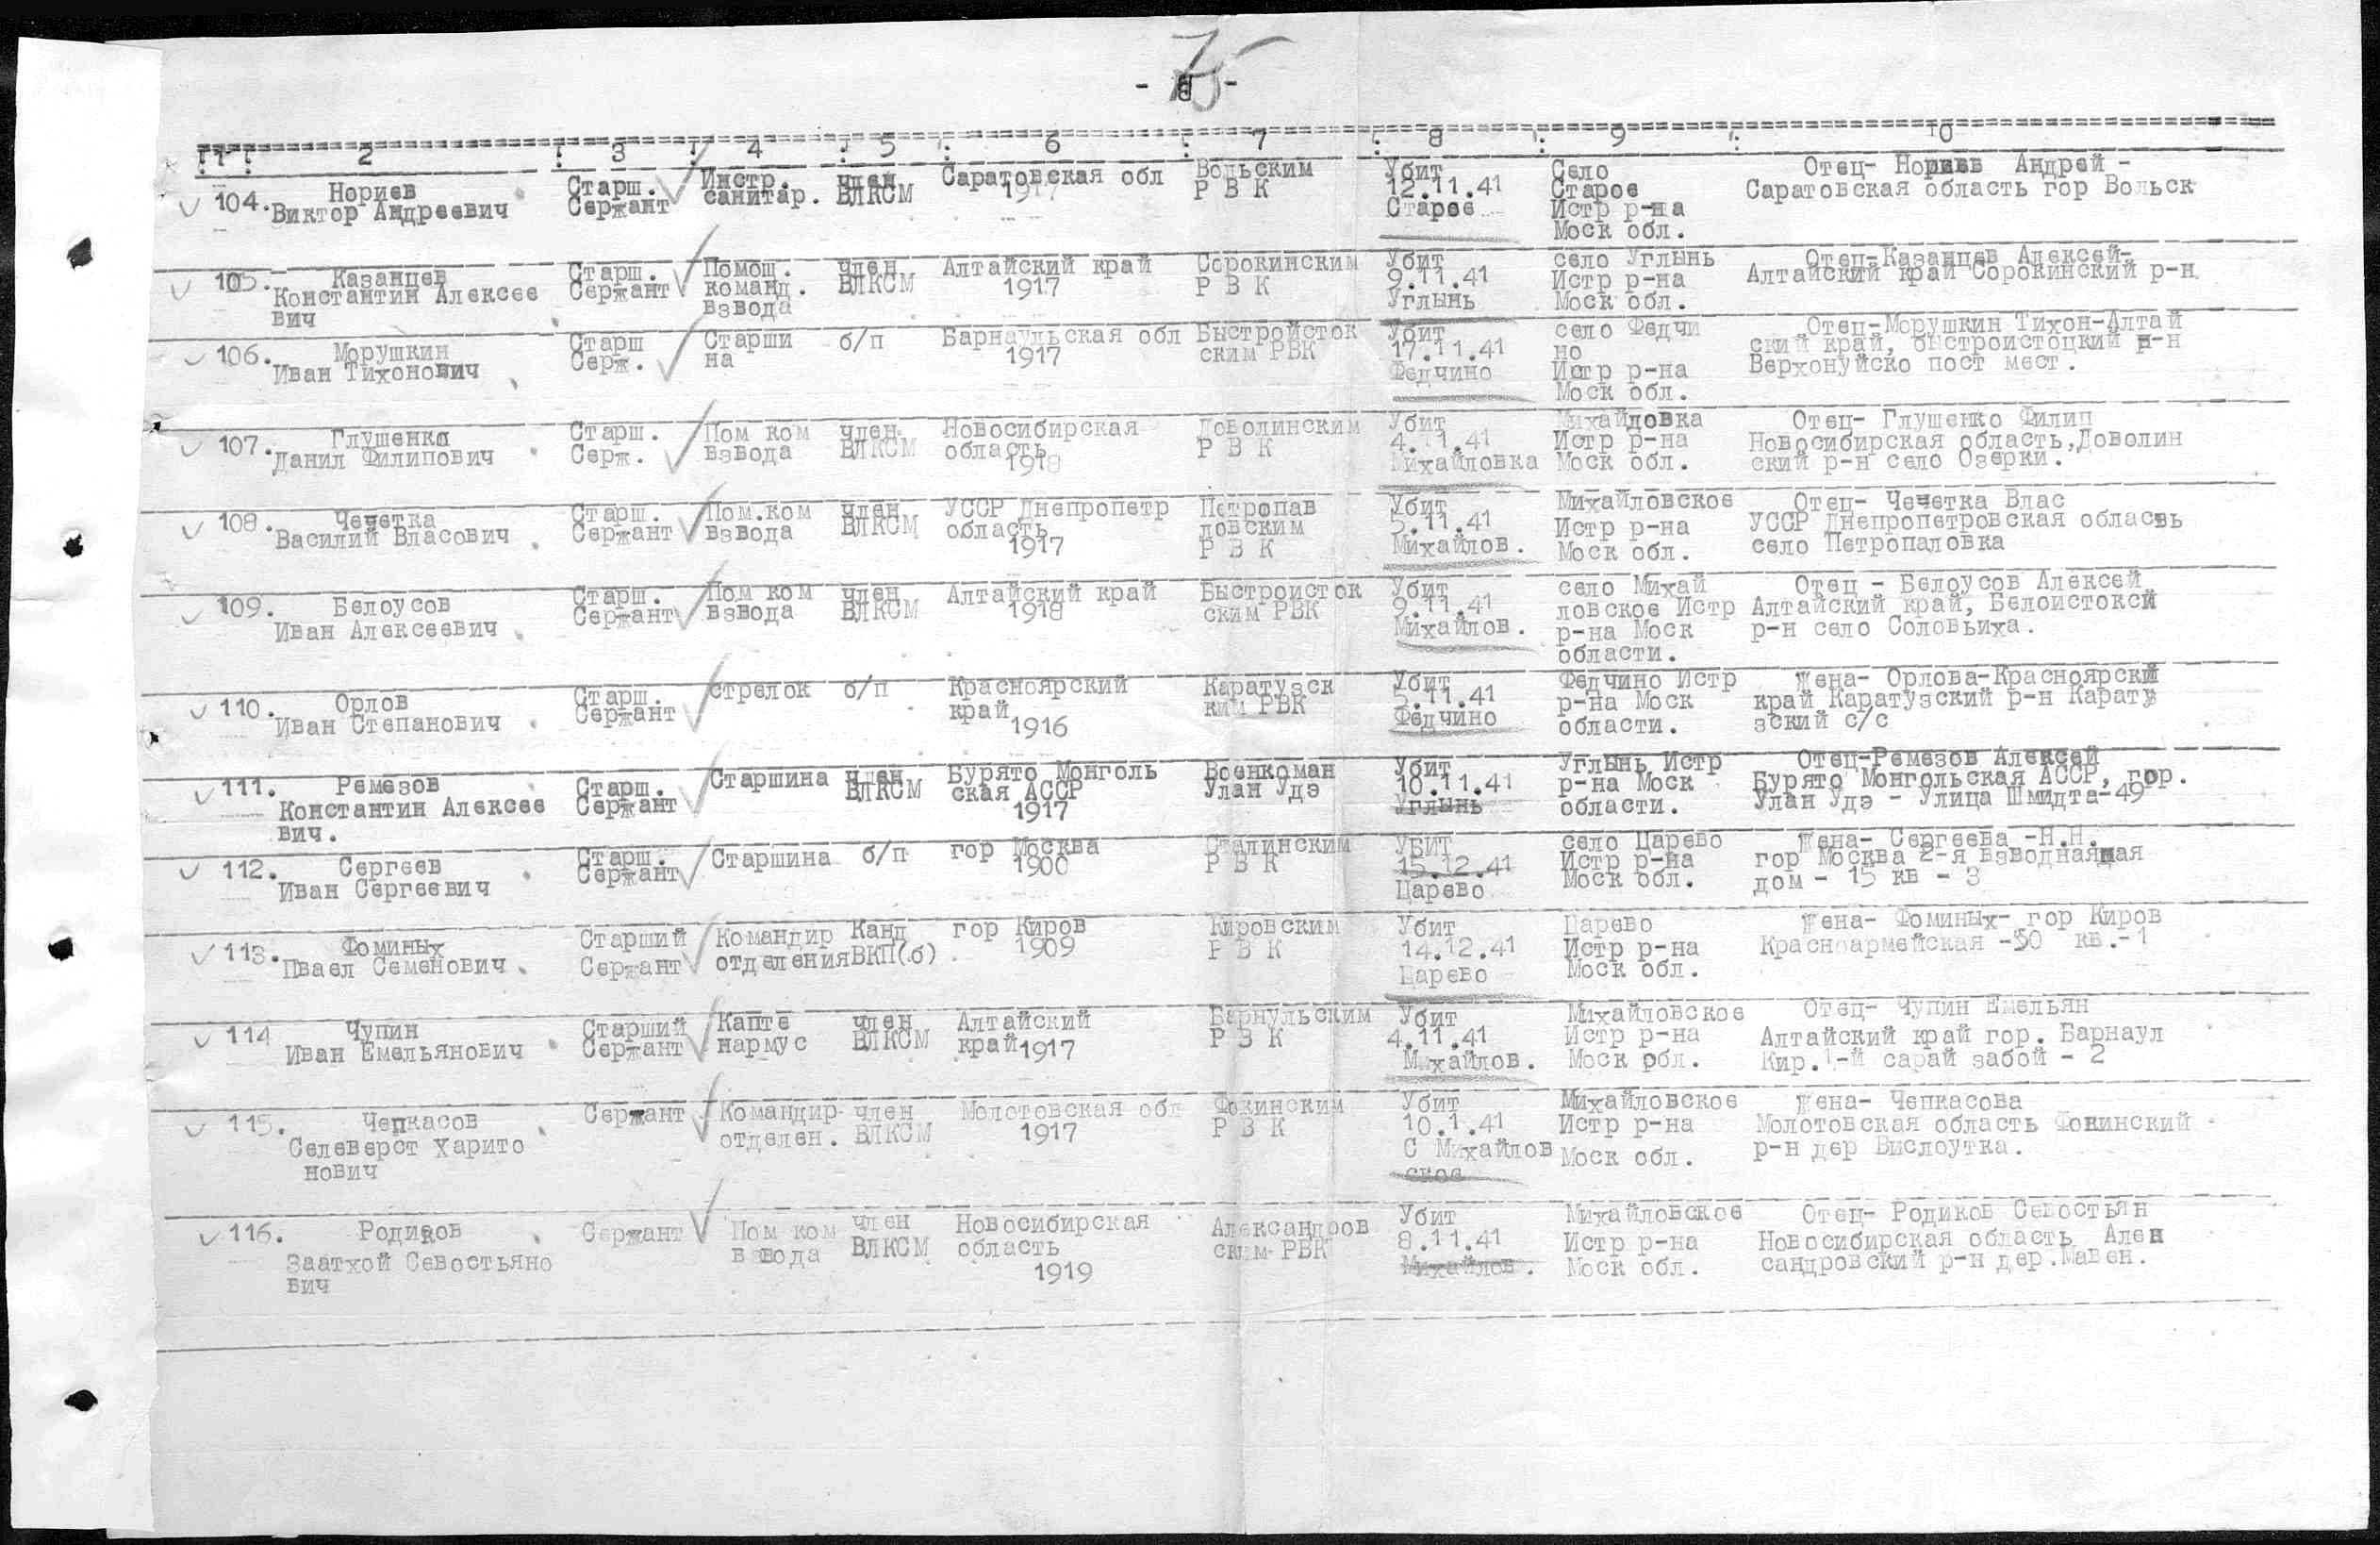 75
- 8 -
1 2 3 4 5 6 7 8 9 10
104. Нориев Старш. Инстр. член Саратовская обл Вольским Убит Село Отец- Нориев Андрей -
Виктор Андреевич Сержант санитар. ВЛКСМ 1917 Р В К 12.11.41 Старое Саратовская область гор Вольск
Старое Истр р-на
Моск обл.
105. Казанцев Старш. Помощ. член Алтайский край Сорокинским Убит село Углынь Отец-Казанцев Алексей-
Константин Алексее Сержант команд. ВЛКСМ 1917 Р В К 9.11.41 Истр р-на Алтайский край Сорокинский р-н
вич взвода Углынь Моск обл.
106. Морушкин Старш Старши б/п Барнаульская обл Быстройсток Убит село Федчи Отец-Морушкин Тихон-Алтай
Иван Тихонович Серж. на 1917 ским РВК 17.11.41 но ский край, быстроистоцкий р-н
Федчино Истр р-на Верхонуйско пост мест.
Моск обл.
107. Глушенко Старш. Пом ком член Новосибирская Доволинским Убит Михайловка Отец- Глушенко Филип
Данил Филипович Серж. взвода ВЛКСМ область Р В К 4.11.41 Истр р-на Новосибирская область,Доволин
1918 Михайловка Моск обл. ский р-н село Озерки.
108. Чечетка Старш. Пом.ком член УССР Днепропетр Петропав Убит Михайловское Отец- Чечетка Влас
Василий Власович Сержант взвода ВЛКСМ область ловским 5.11.41 Истр р-на УССР Днепропетровская область
1917 Р В К Михайлов. Моск обл. село Петропаловка
109. Белоусов Старш. Пом ком член Алтайский край Быстроисток Убит село Михай Отец - Белоусов Алексей
Иван Алексеевич Сержант взвода ВЛКСМ 1918 ским РВК 9.11.41 ловское Истр Алтайский край, Белоистокси
Михайлов. р-на Моск р-н село Соловьиха.
области.
110. Орлов Старш. стрелок б/п Красноярский Каратузск Убит Федчино Истр Жена- Орлова-Красноярский
Иван Степанович Сержант край ким РВК 5.11.41 р-на Моск край Каратузский р-н Карату
1916 Федчино области. зский с/с
111. Ремезов Старш. Старшина член Бурято Монголь Военкоман Убит Углынь Истр Отец-Ремезов Алексей
Константин Алексее Сержант ВЛКСМ ская АССР Улан Удэ 10.11.41 р-на Моск Бурято Монгольская АССР, гор.
вич. 1917 Углынь области. Улан Удэ - Улица Шмидта-49
112. Сергеев Старш. Старшина б/п гор Москва Сталинским Убит село Царево Жена- Сергеева -Н.Н.
Иван Сергеевич Сержант 1900 Р В К 15.12.41 Истр р-на гор Москва 2-я взводная
Царево Моск обл. дом - 15 кв - 3
113. Фоминых Старший Командир Канд гор Киров Кировским Убит Царево Жена- Фоминых- гор Киров
Пваел Семенович Сержант отделения ВКП(б) 1909 Р В К 14.12.41 Истр р-на Красноармейская -50 кв.-1
Царево Моск обл.
114 Чупин Старший Капте член Алтайский Барнульским Убит Михайловское Отец- Чупин Емельян
Иван Емельянович Сержант нармус ВЛКСМ край 1917 Р В К 4.11.41 Истр р-на Алтайский край гор. Барнаул
Михайлов. Моск обл. Кир.1-й сарай забой - 2
115. Чепкасов Сержант Командир член Молотовская обл Фокинским Убит Михайловское Жена- Чепкасова
Селеверст Харито отделен. ВЛКСМ 1917 Р В К 10.1.41 Истр р-на Молотовская область Фокинский
нович С Михайлов Моск обл. р-н дер Вислоутка.
ское
116. Родиков Сержант Пом ком член Новосибирская Александров Убит Михайловское Отец- Родиков Севостьян
Заатхой Севостьяно взвода ВЛКСМ область ским РВК 8.11.41 Истр р-на Новосибирская область Ален
вич 1919 Михайлов. Моск обл. сандровский р-н дер.Мавен.